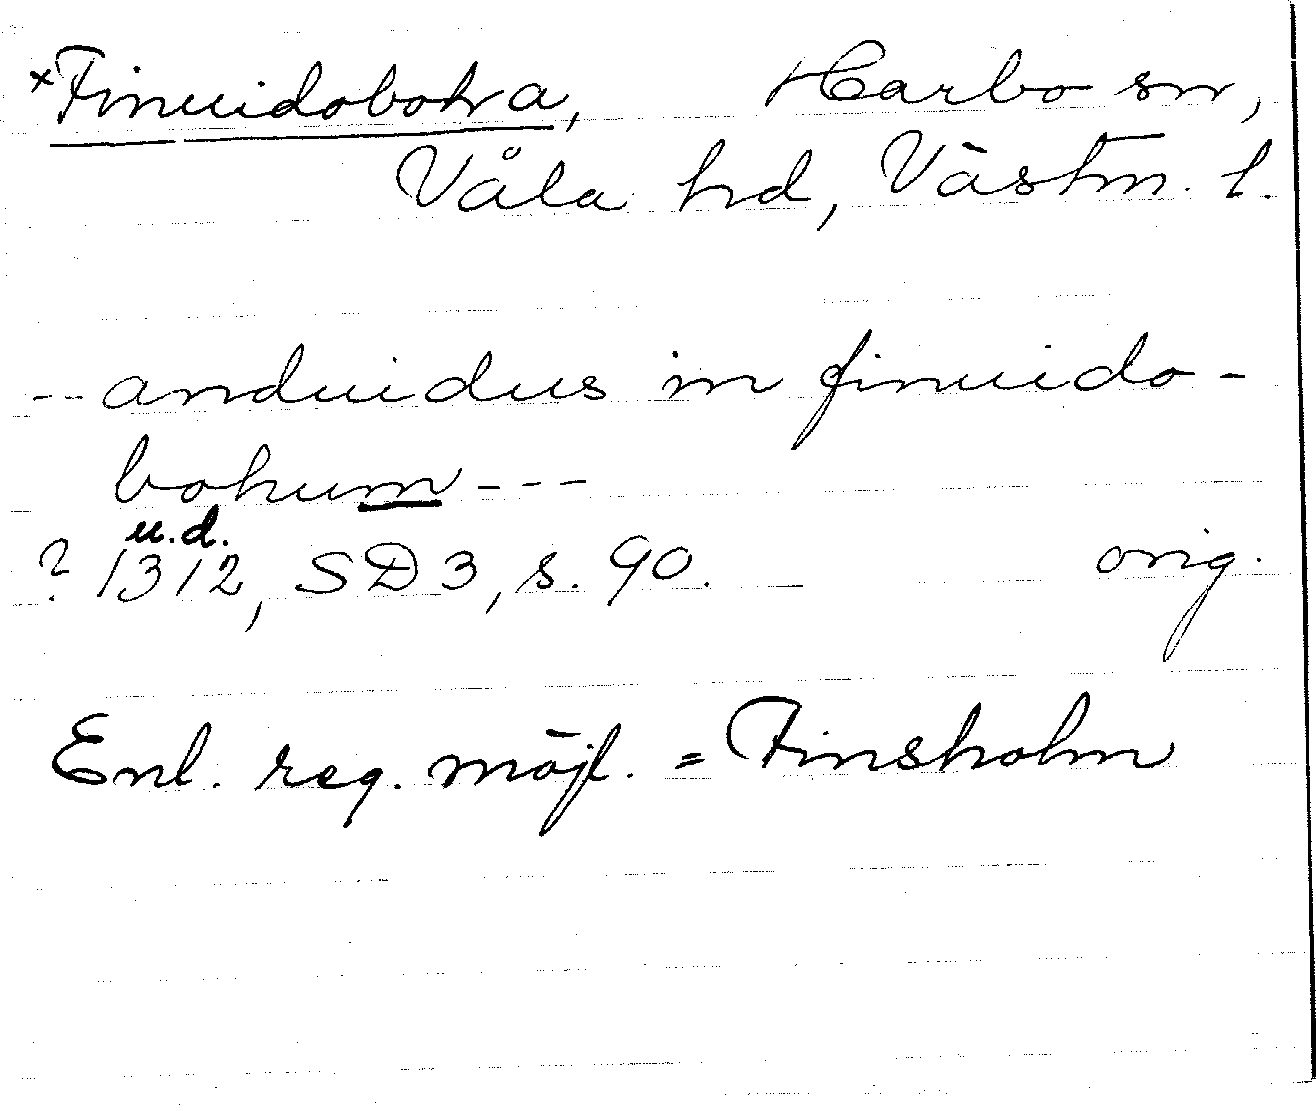 ×Finuidobohra, Harbo sn,
Våla hd, Västm. l.
-- anduidus in finuido-
bohum ---
u.d.
? 1312, SD 3, s. 90. orig.
Enl. reg. möjl. = Finsholm